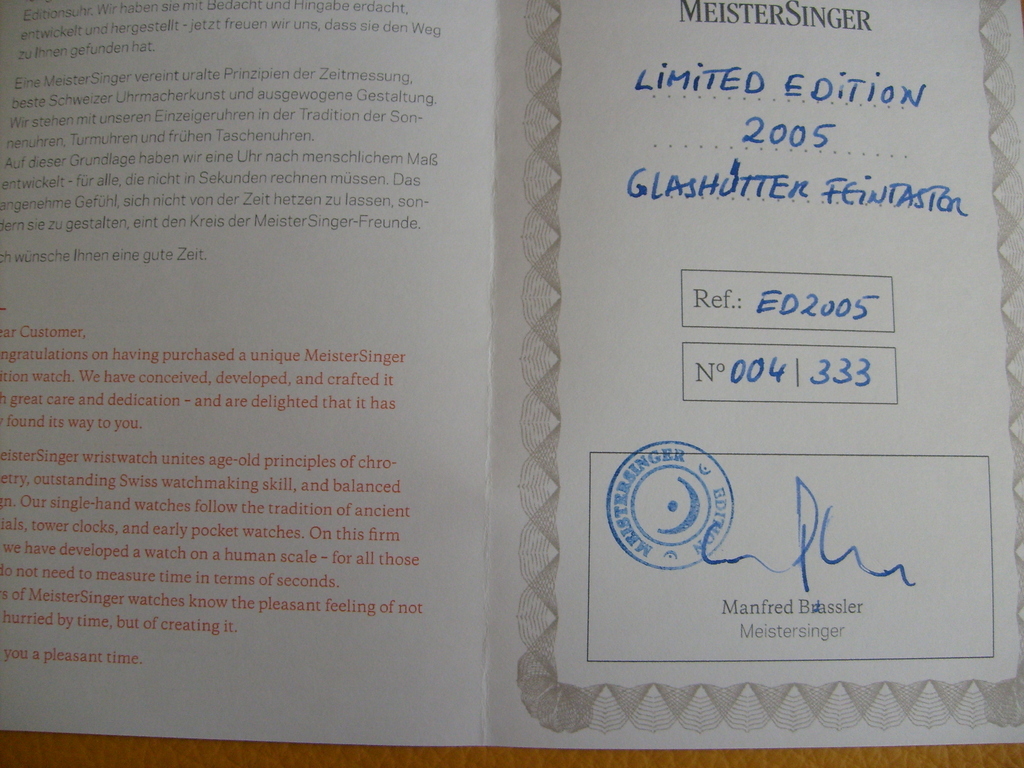 Editionsuhr. Wir haben sie mit Bedacht und Hingabe erdacht,
entwickelt und hergestellt - jetzt freuen wir uns, dass sie den Weg
zu Ihnen gefunden hat.
Eine MeisterSinger vereint uralte Prinzipien der Zeitmessung,
beste Schweizer Uhrmacherkunst und ausgewogene Gestaltung.
Wir stehen mit unseren Einzeigeruhren in der Tradition der Son-
nenuhren, Turmuhren und frühen Taschenuhren.
Auf dieser Grundlage haben wir eine Uhr nach menschlichem Maß
entwickelt - für alle, die nicht in Sekunden rechnen müssen. Das
angenehme Gefühl, sich nicht von der Zeit hetzen zu lassen, son-
dern sie zu gestalten, eint den Kreis der MeisterSinger-Freunde.
ch wünsche Ihnen eine gute Zeit.
ear Customer,
ngratulations on having purchased a unique MeisterSinger
ition watch. We have conceived, developed, and crafted it
h great care and dedication – and are delighted that it has
y found its way to you.
eisterSinger wristwatch unites age-old principles of chro-
etry, outstanding Swiss watchmaking skill, and balanced
gn. Our single-hand watches follow the tradition of ancient
ials, tower clocks, and early pocket watches. On this firm
we have developed a watch on a human scale – for all those
do not need to measure time in terms of seconds.
s of MeisterSinger watches know the pleasant feeling of not
hurried by time, but of creating it.
you a pleasant time.
MEISTERSINGER
LIMITED EDITION
2005
GLASHÜTTER FEINTASTER
Ref.: ED2005
N° 004 | 333
MEISTERSINGER EDITION
Manfred Brassler
Meistersinger